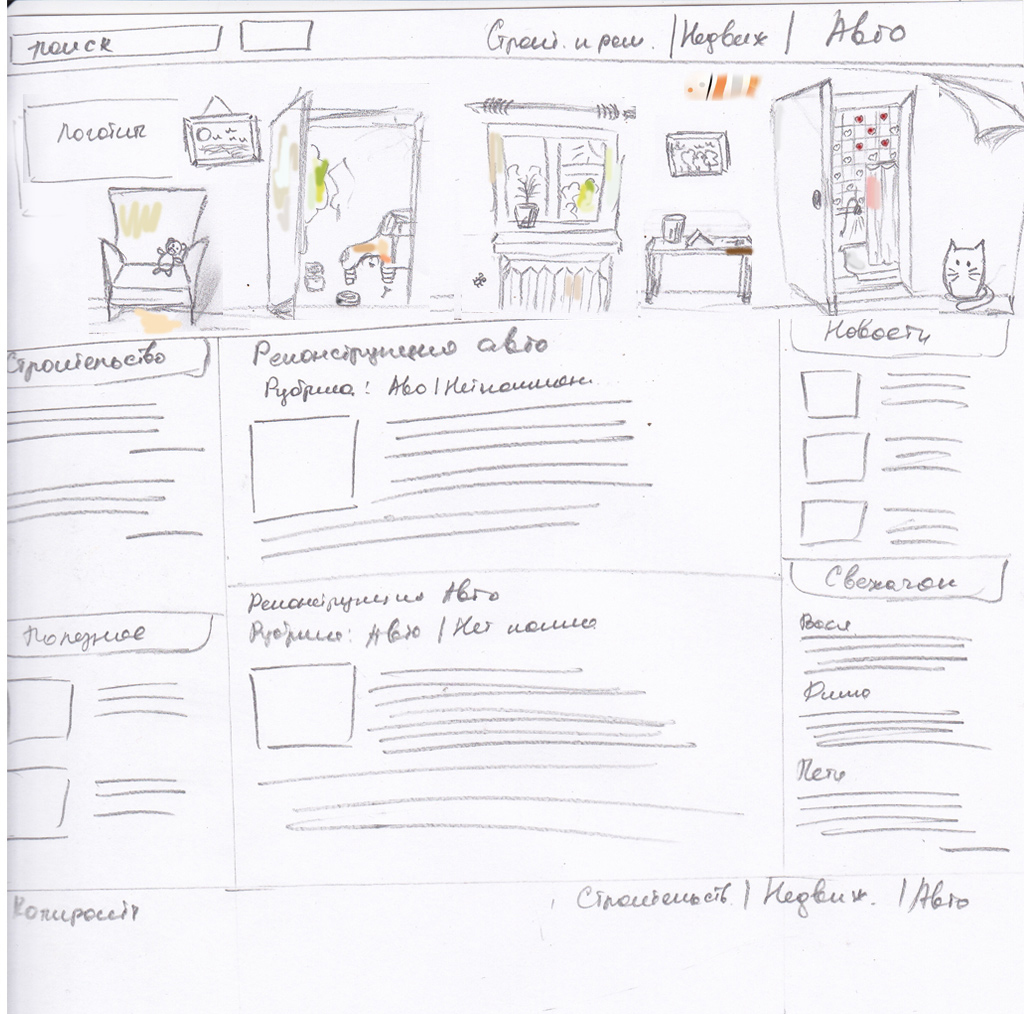 поиск
Строит. и рем. | Недвиж | Авто
Логотип
Строительство
Реконструкция авто
Рубрика: Аво |
Новости
Свежачок
Реконструкция Авто
Рубрика: Авто | Нет
Полезное
Вася
Дима
Петя
Копирайт
Строительств. | Недвиж. | Авто